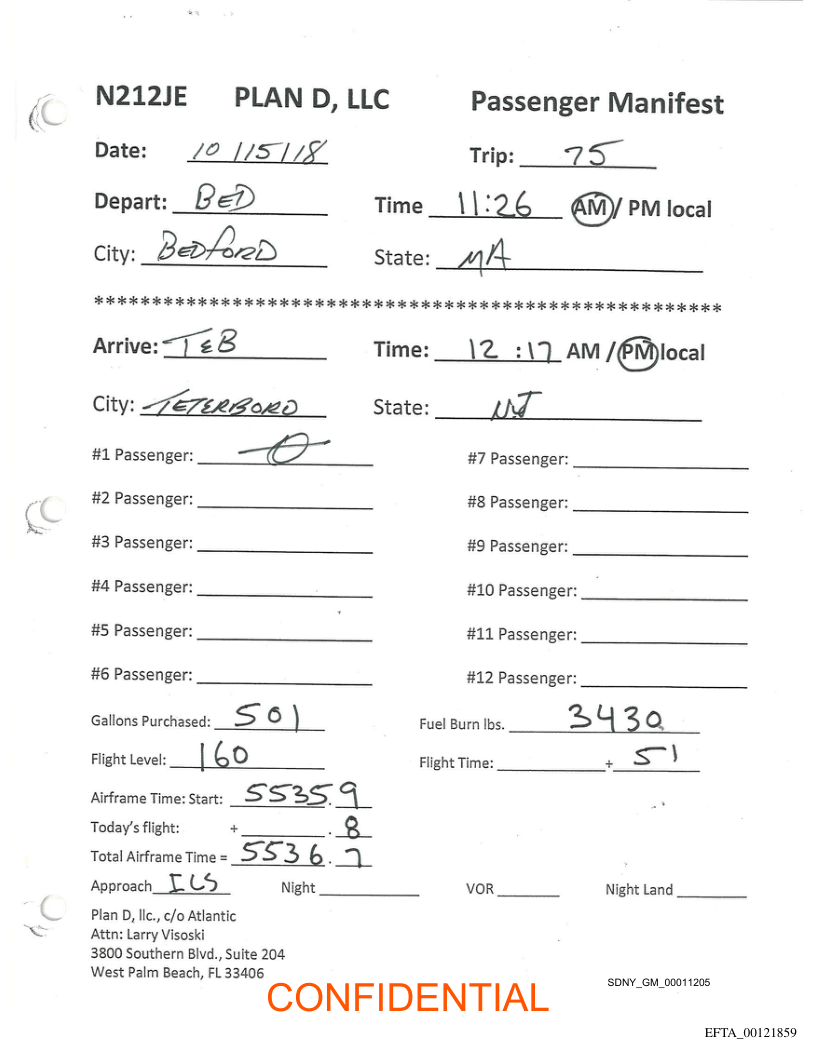 N212JE PLAN D, LLC Passenger Manifest
Date: 10/15/18 Trip: 75
Depart: BED Time 11:26 AM / PM local
City: BEDFORD State: MA
******************************************************
Arrive: TEB Time: 12:17 AM / PM local
City: TETERBORO State: NJ
#1 Passenger: 0 #7 Passenger:
#2 Passenger: #8 Passenger:
#3 Passenger: #9 Passenger:
#4 Passenger: #10 Passenger:
#5 Passenger: #11 Passenger:
#6 Passenger: #12 Passenger:
Gallons Purchased: 501 Fuel Burn lbs. 3430
Flight Level: 160 Flight Time: + 51
Airframe Time: Start: 5535.9
Today's flight: + .8
Total Airframe Time = 5536.7
Approach ILS Night VOR Night Land
Plan D, llc., c/o Atlantic
Attn: Larry Visoski
3800 Southern Blvd., Suite 204
West Palm Beach, FL 33406
CONFIDENTIAL
SDNY_GM_00011205
EFTA_00121859